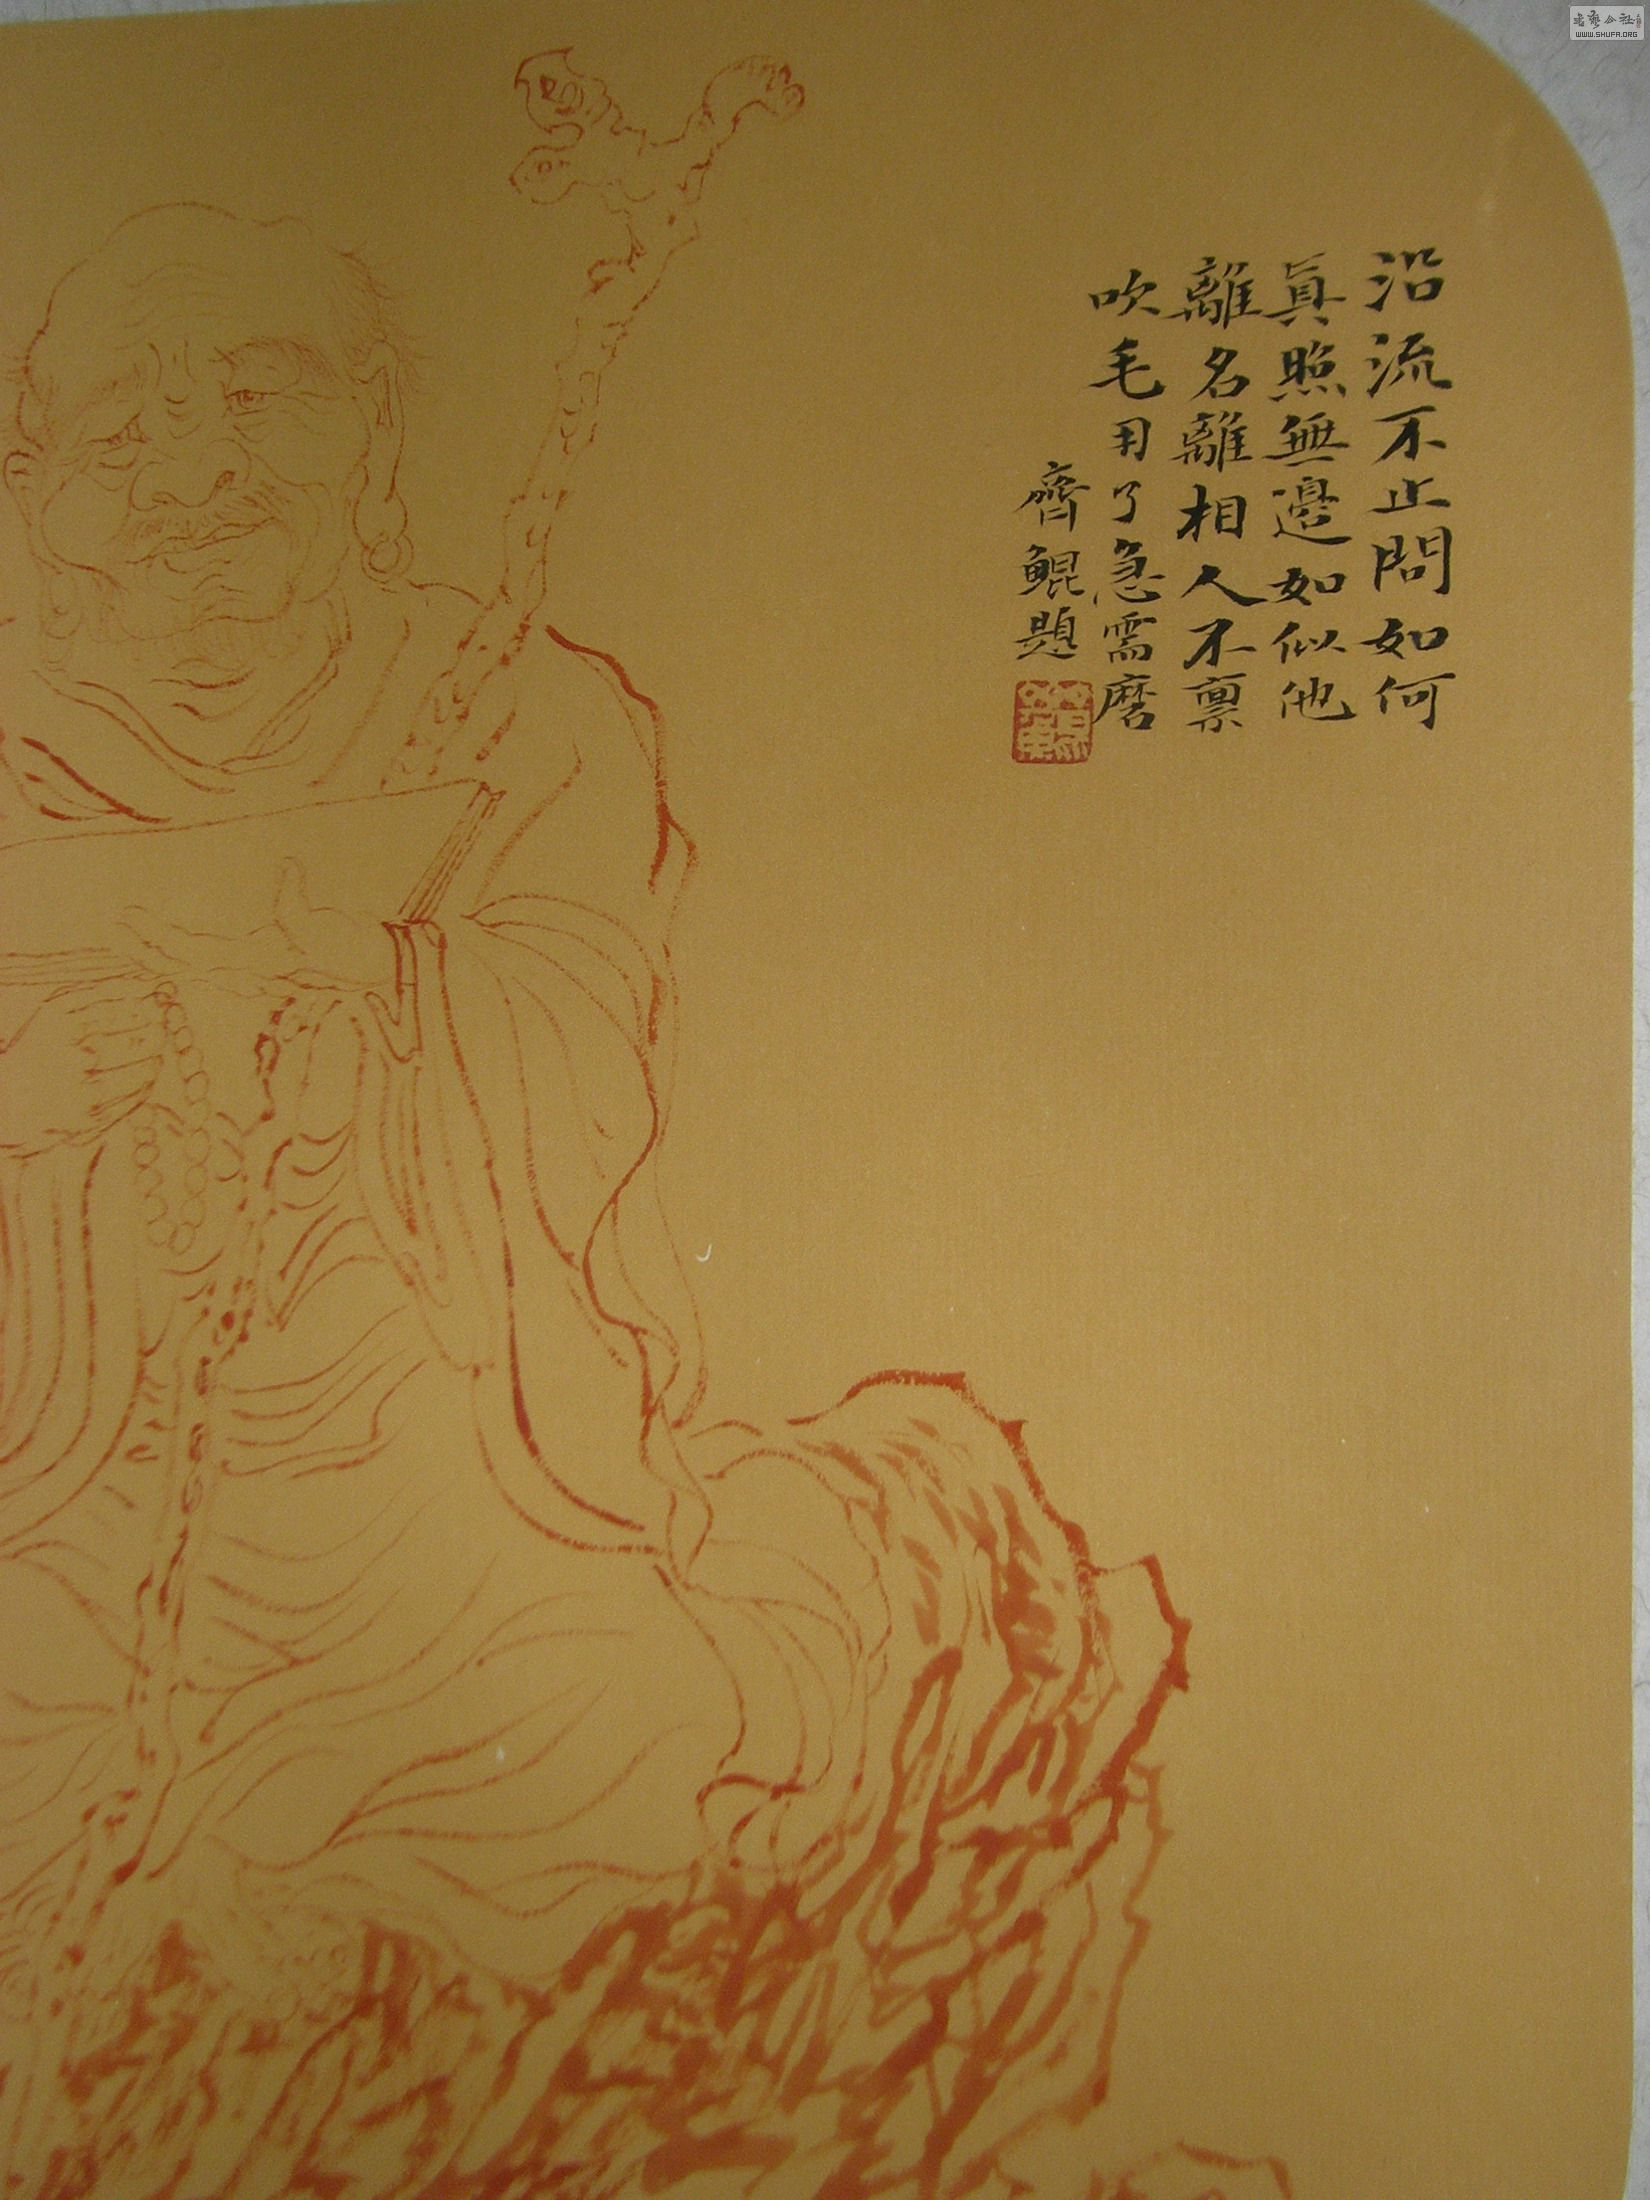 沿流不止問如何
真照無邊如似他
離名離相人不禀
吹毛用了急需磨
齊鲲題
書藝公社
WWW.SHUFA.ORG